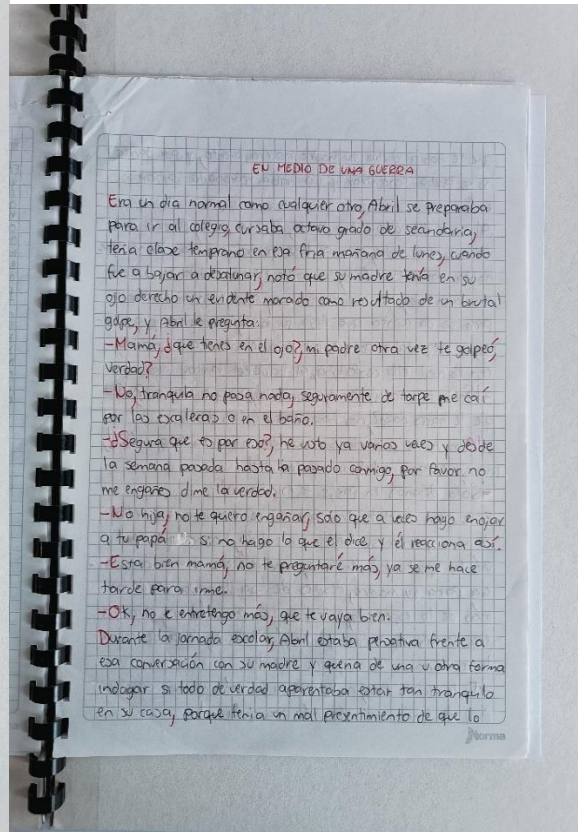 EN MEDIO DE UNA GUERRA
Era un dia normal como cualquier otro, Abril se preparaba
para ir al colegio, cursaba octavo grado de secundaria,
tenia clase temprano en esa fria mañana de lunes, cuando
fue a bajar a desayunar, notó que su madre tenía en su
ojo derecho un evidente morado como resultado de un brutal
golpe, y Abril le pregunta:
-Mamá, ¿que tienes en el ojo?, mi padre otra vez te golpeó,
verdad?
-No, tranquila no pasa nada, seguramente de torpe me caí
por las escaleras o en el baño.
-¿Segura que es por eso?, he visto ya varias veces y desde
la semana pasada hasta ha pasado conmigo, por favor no
me engañes dime la verdad.
-No hija, no te quiero engañar, solo que a veces hago enojar
a tu papá si no hago lo que el dice y él reacciona así.
-Esta bien mamá, no te preguntaré más, ya se me hace
tarde para irme.
-OK, no te entretengo más, que te vaya bien.
Durante la jornada escolar, Abril estaba pensativa frente a
esa conversación con su madre y queria de una u otra forma
indagar si todo de verdad aparentaba estar tan tranquilo
en su casa, porque tenia un mal presentimiento de que lo
Norma